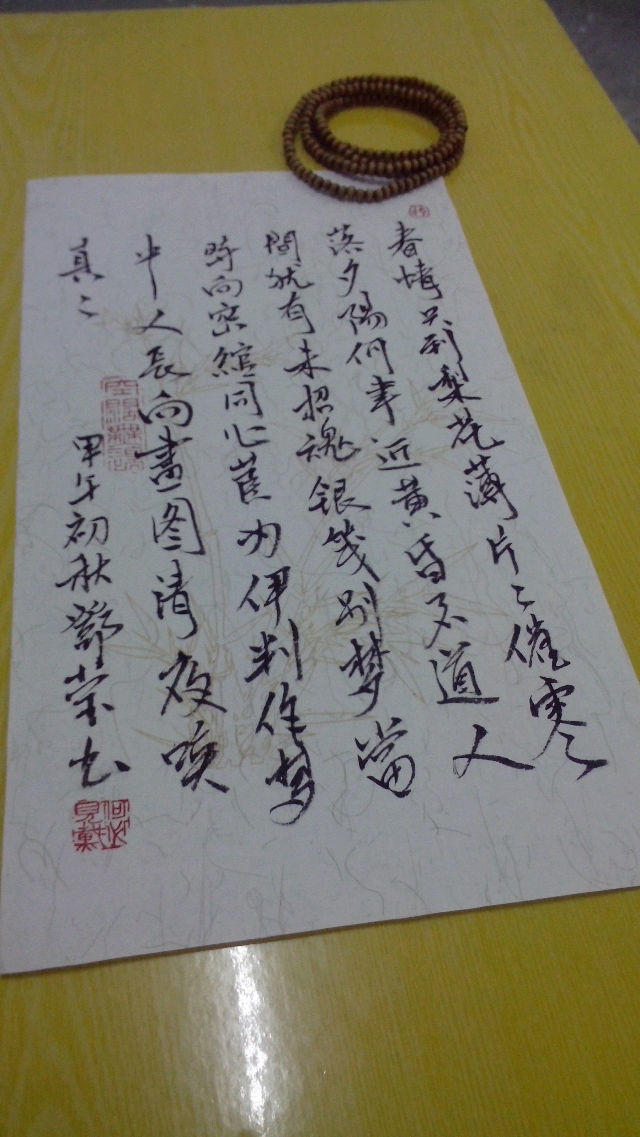 春情只到梨花薄片々催零
落夕陽何事近黄昏不道人
間犹有未招魂银笺别梦當
时向密綰同心苣为伊判作梦
中人長向畫图清夜唤
真々
甲午初秋鄧荣书